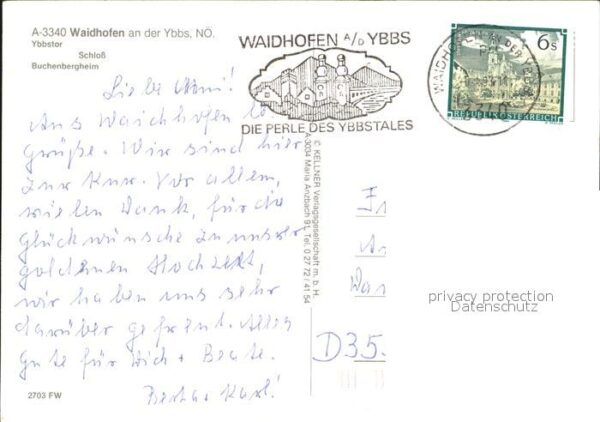 A-3340 Waidhofen an der Ybbs, NÖ.
Ybbstor
Schloß
Buchenbergheim
WAIDHOFEN A/D YBBS
DIE PERLE DES YBBSTALES
WAIDHOFEN AN DER YBBS
3340
6 S
REPUBLIK ÖSTERREICH
Liebe
Aus Waidhofen
Grüße. Wir sind hier
zur Kur. Vor allem,
vielen Dank, für die
Glückwünsche zu unserer
goldenen Hochzeit,
wir haben uns sehr
darüber gefreut. Alles
Gute für Dich + Beate.
Berta + Karl!
© KELLNER Verlagsgesellschaft m. b. H.
A-3034 Maria Anzbach 91, Tel. 0 27 72 / 41 54
D35.
privacy protection
Datenschutz
2703 FW